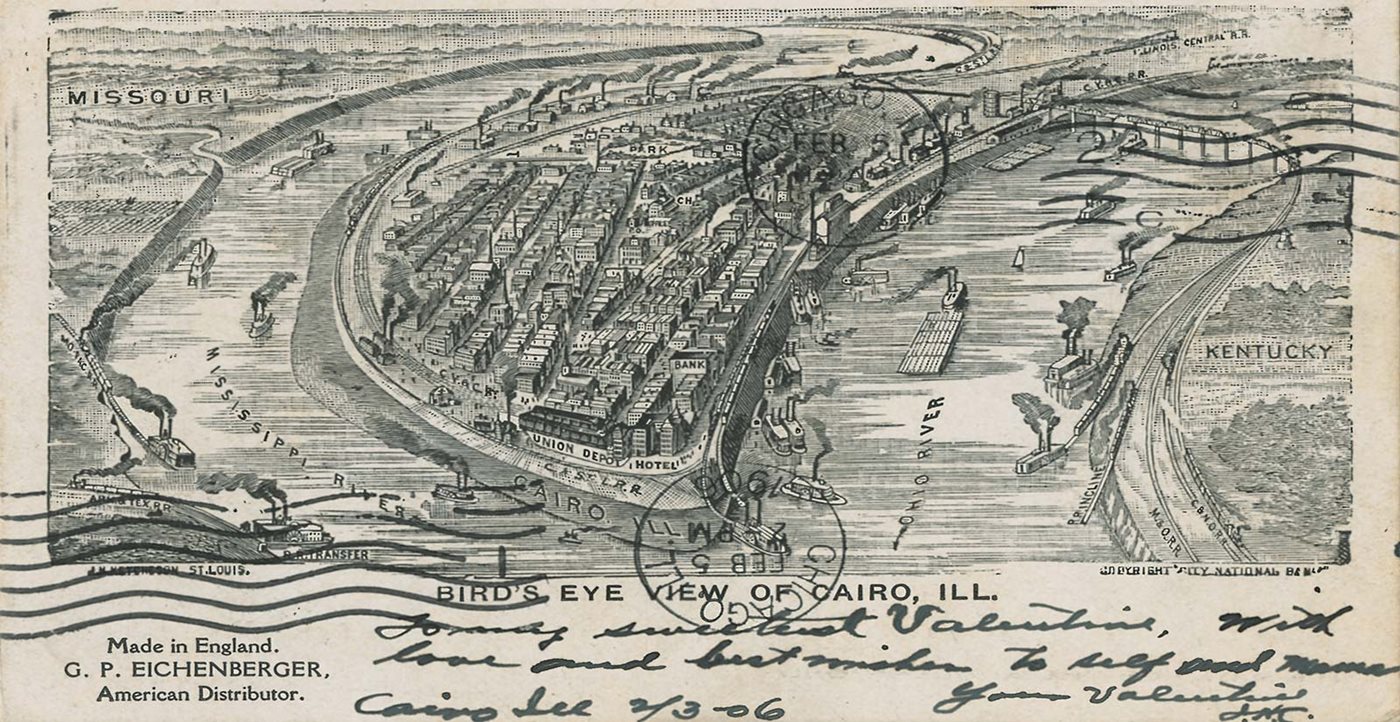 ILLINOIS CENTRAL R.R.
MISSOURI
C.V.&S. R.R.
CHICAGO
FEB 5
PARK
CH.
2
C
KENTUCKY
BANK
C.V.&C.RY
MISSISSIPPI RIVER
OHIO RIVER
UNION DEPOT
HOTEL
C.&ST.L.R.R.
CAIRO
R.R.INCLINE
M.&O.R.R.
R.R.TRANSFER
1906
2 PM
FEB 5
ILL.
CHICAGO
ST. LOUIS.
COPYRIGHT CITY NATIONAL BANK
BIRD'S EYE VIEW OF CAIRO, ILL.
Made in England.
G. P. EICHENBERGER,
American Distributor.
To my sweetest Valentine, With
love and best wishes to self and mama
Your Valentine
J.H.C.
Cairo Ill 2/3-06